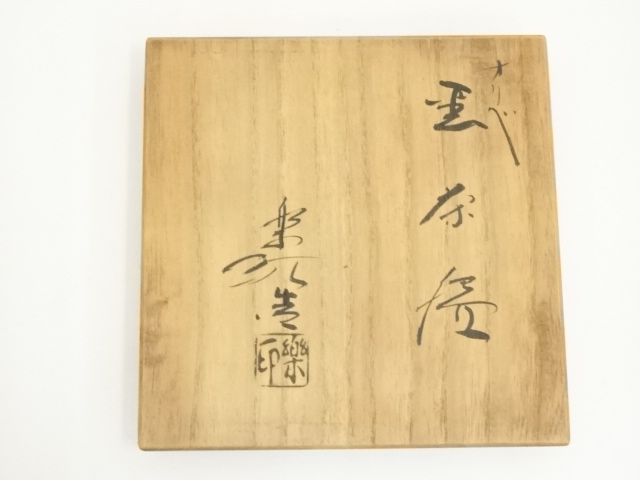 オリベ
黒茶碗
楽入造
樂印